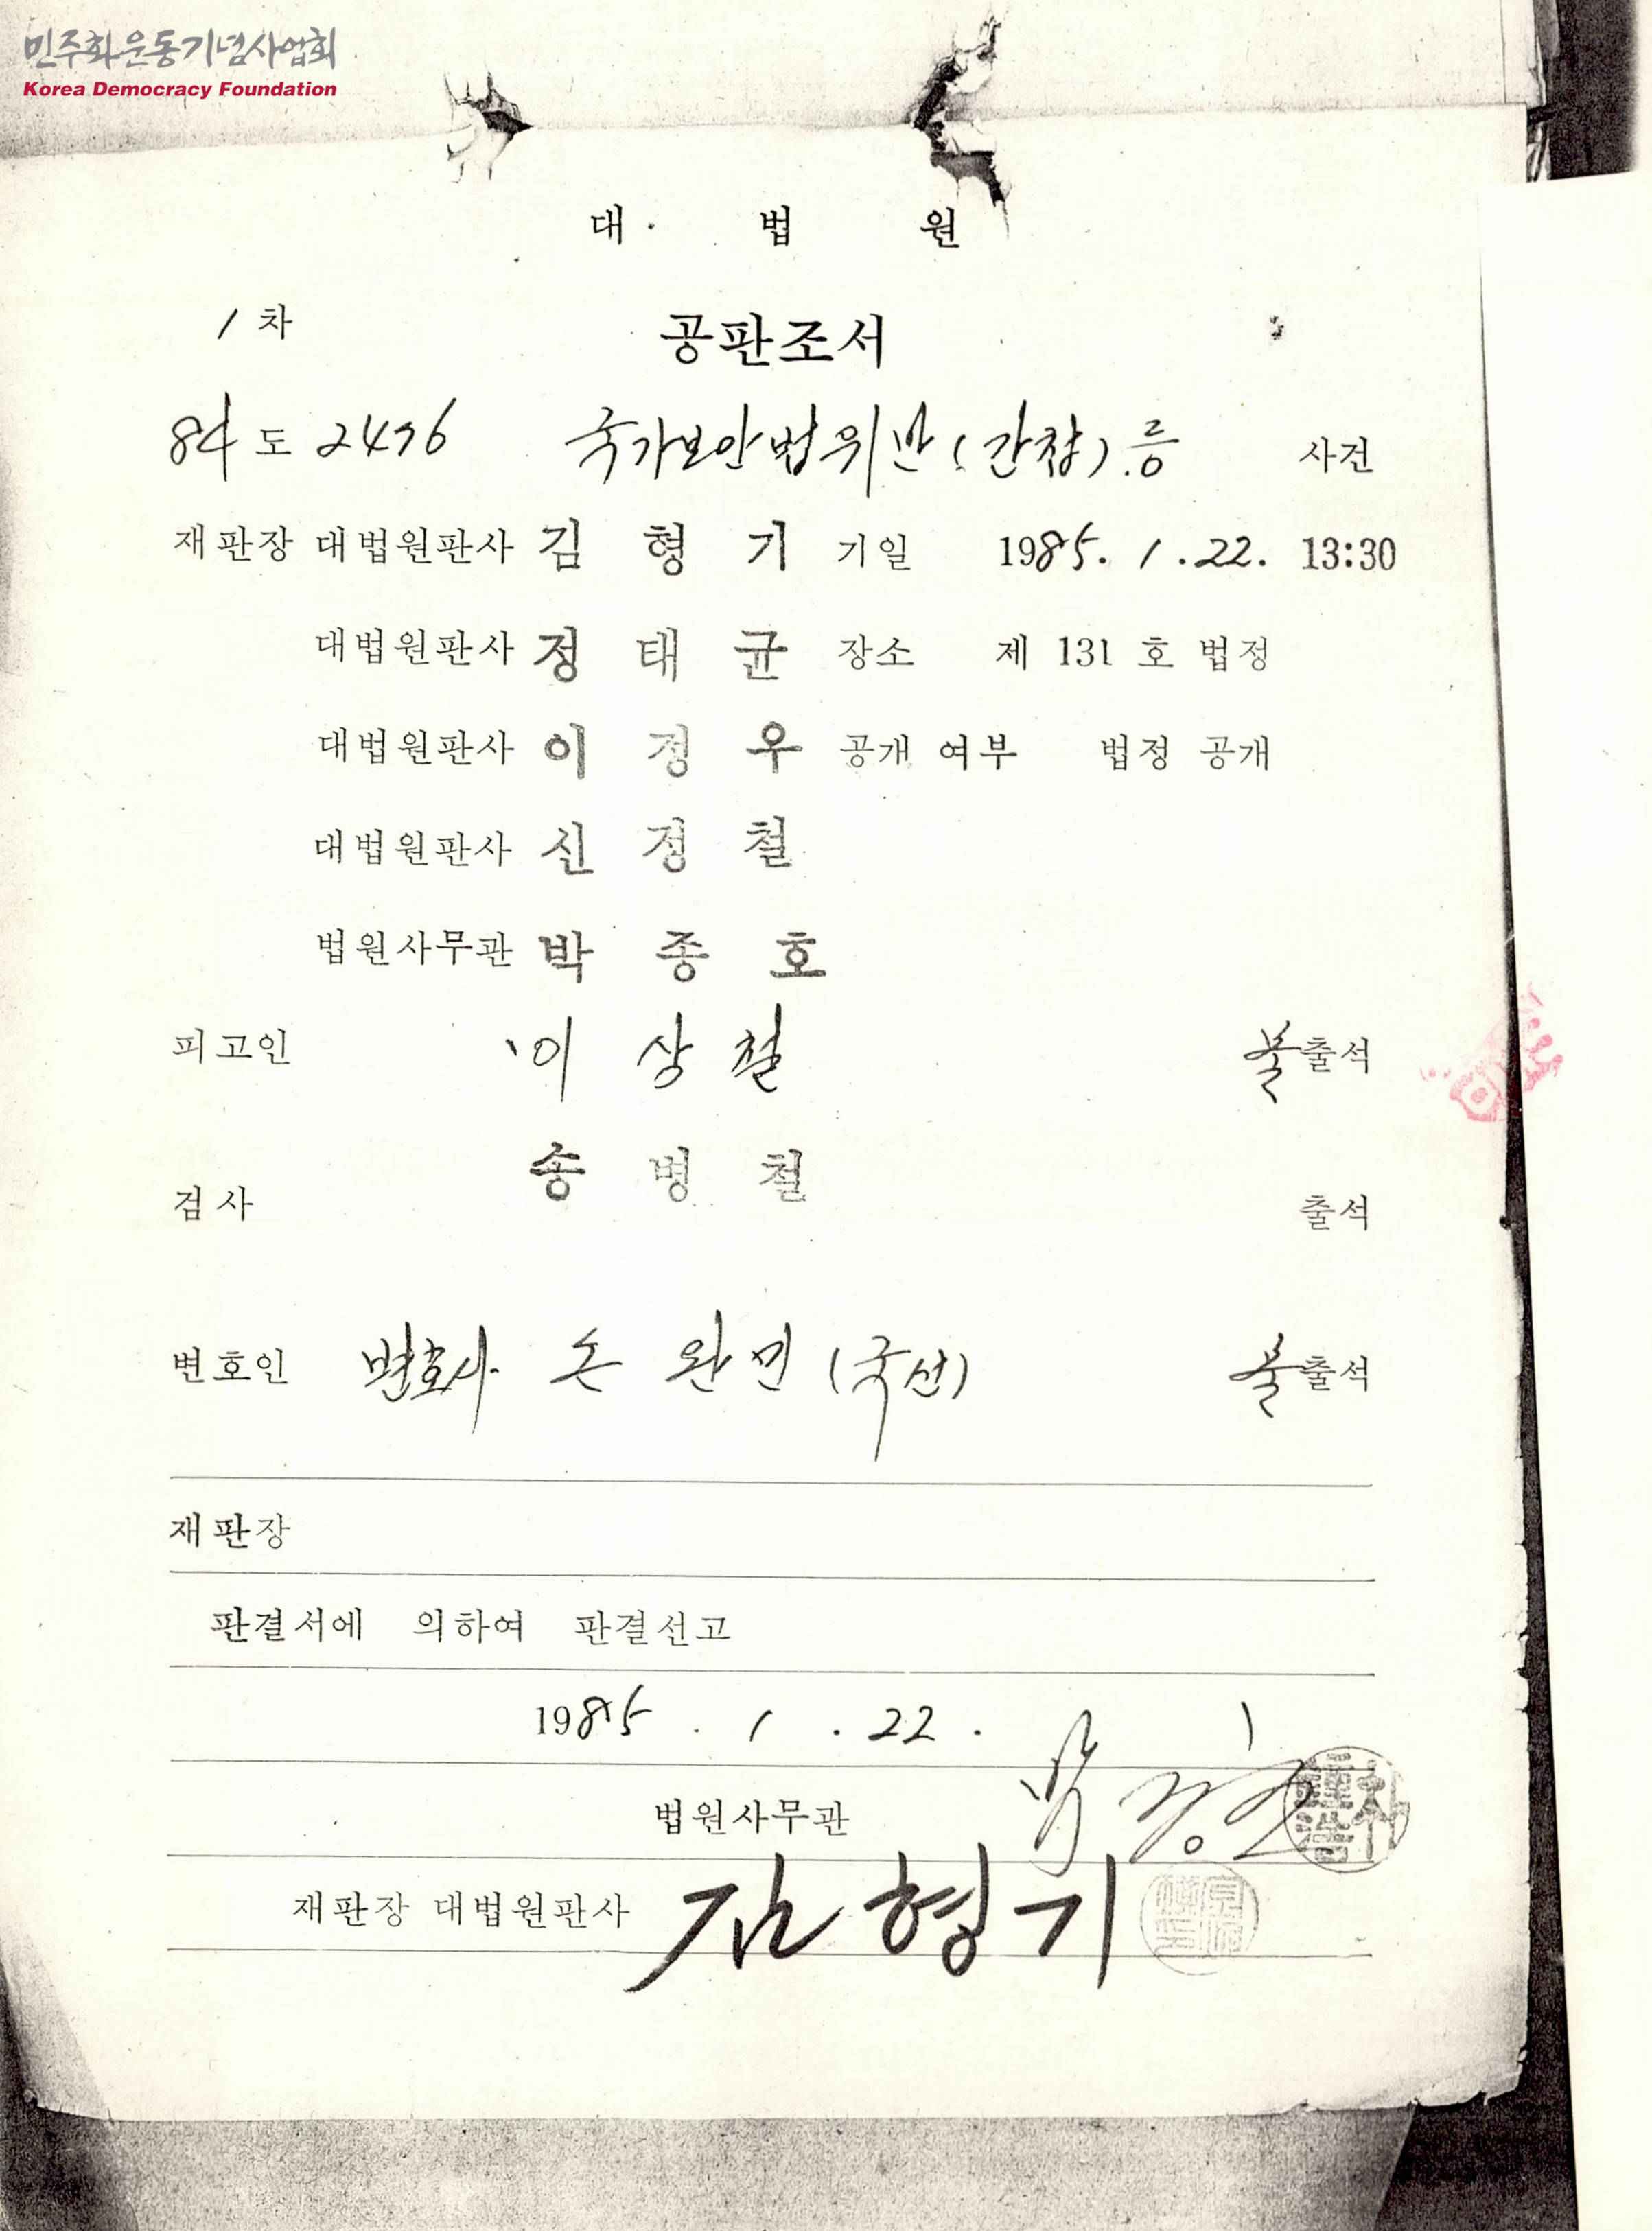 민주화운동기념사업회
Korea Democracy Foundation
대 법 원
1 차
공판조서
84 도 2476 국가보안법위반(간첩)등 사건
재판장 대법원판사 김 형 기 기일 1985. 1. 22. 13:30
대법원판사 정 태 균 장소 제 131 호 법정
대법원판사 이 정 우 공개 여부 법정 공개
대법원판사 신 정 철
법원사무관 박 종 호
피고인 이 상 철 불출석
송 병 철
검사 출석
변호인 변호사 손 완 민 (국선) 불출석
재판장
판결서에 의하여 판결선고
1985 . 1 . 22 .
법원사무관
재판장 대법원판사 김형기